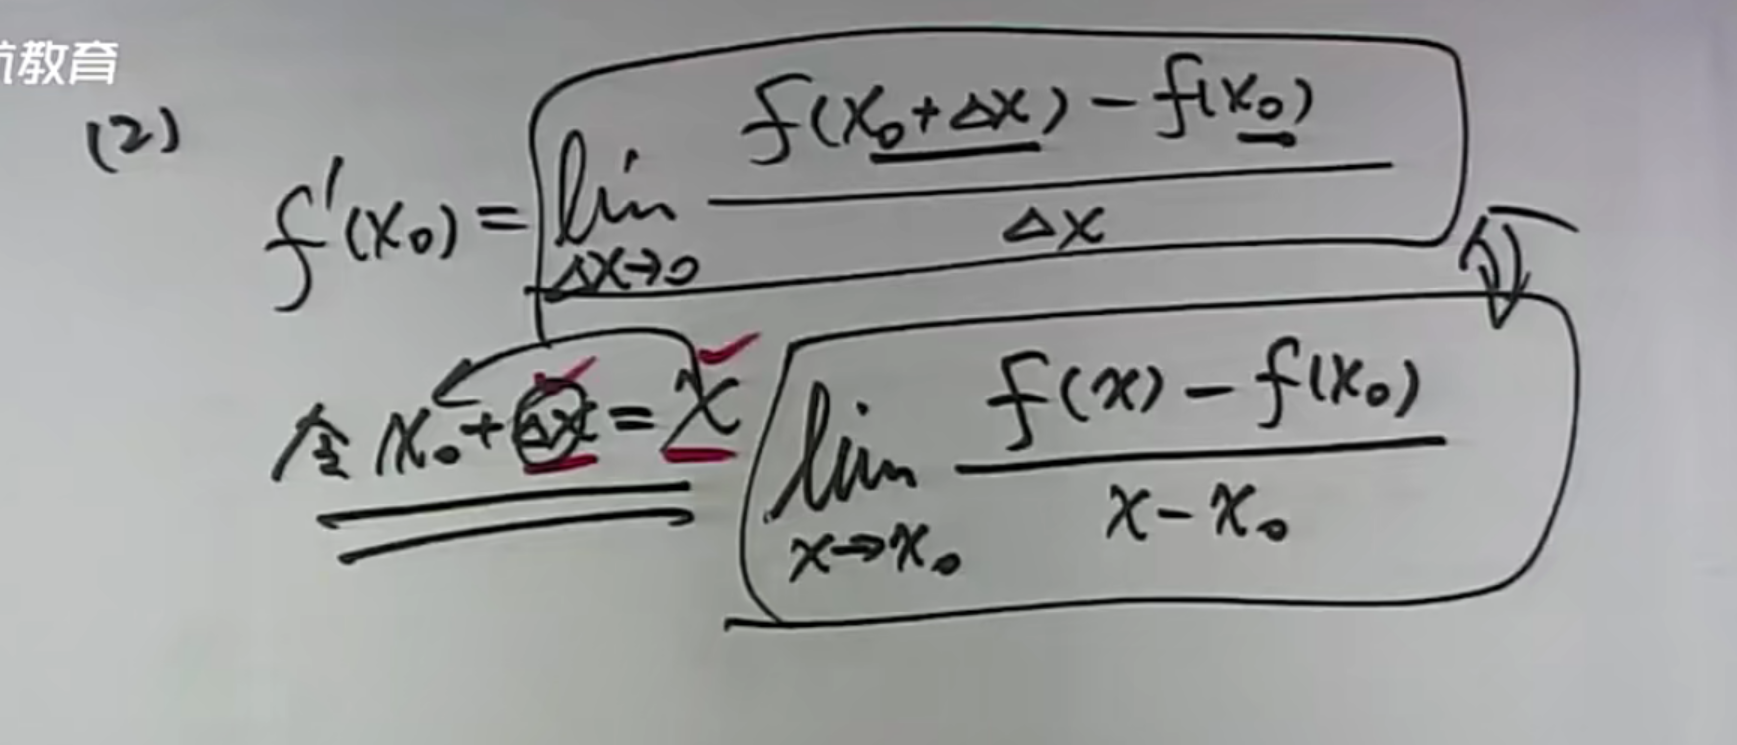 航教育
(2)
f'(x₀) = lim_{Δx→0} \frac{f(x₀+Δx) - f(x₀)}{Δx}
令 x₀+Δx = x lim_{x→x₀} \frac{f(x) - f(x₀)}{x - x₀}